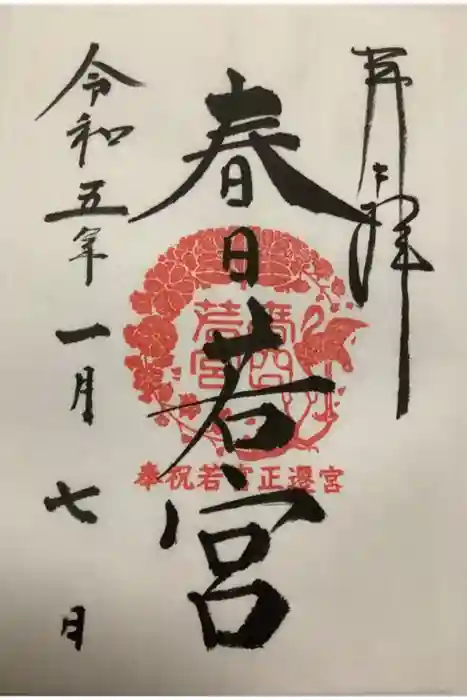 春日若宮
春日
若宮
奉祝若宮正遷宮
令和五年一月七日